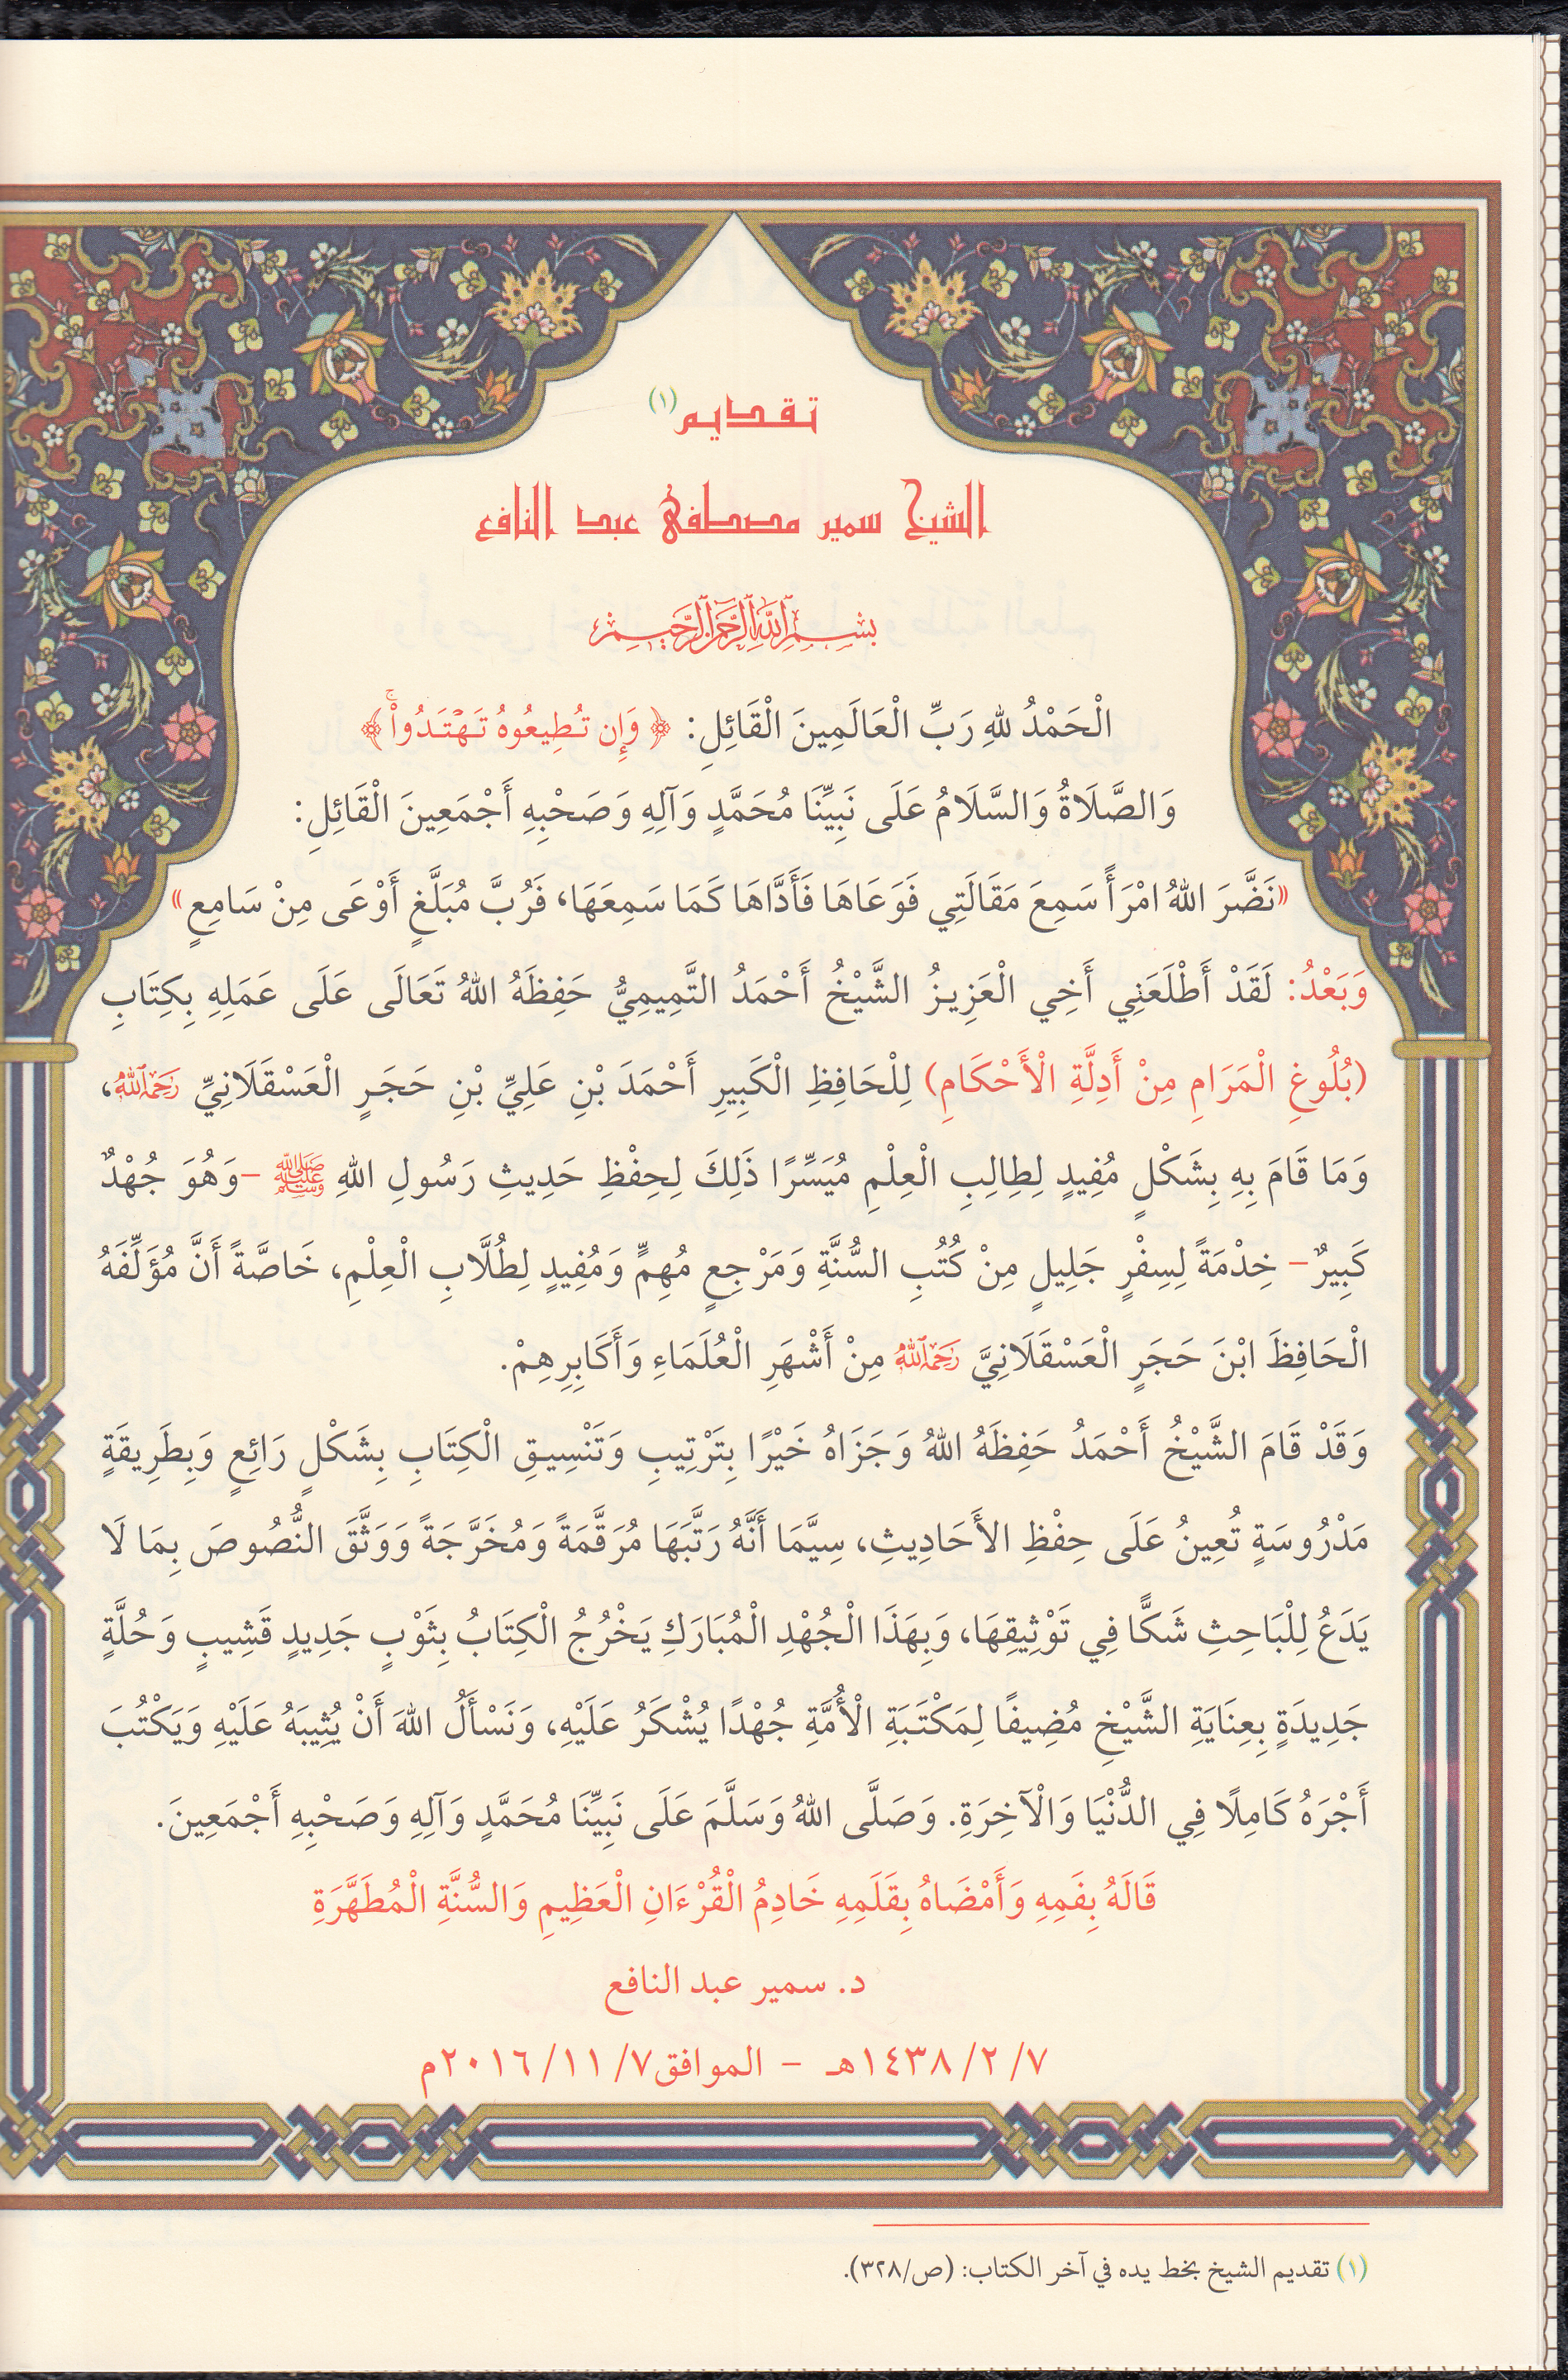 تقديم(١)
الشيخ سمير مصطفى عبد النافع
بِسْمِ اللَّهِ الرَّحْمَٰنِ الرَّحِيمِ
الْحَمْدُ للهِ رَبِّ الْعَالَمِينَ الْقَائِلِ: ﴿وَإِن تُطِيعُوهُ تَهْتَدُواْۚ﴾
وَالصَّلَاةُ وَالسَّلَامُ عَلَى نَبِيِّنَا مُحَمَّدٍ وَآلِهِ وَصَحْبِهِ أَجْمَعِينَ الْقَائِلِ:
«نَضَّرَ اللهُ امْرَأً سَمِعَ مَقَالَتِي فَوَعَاهَا فَأَدَّاهَا كَمَا سَمِعَهَا، فَرُبَّ مُبَلَّغٍ أَوْعَى مِنْ سَامِعٍ»
وَبَعْدُ: لَقَدْ أَطْلَعَنِي أَخِي الْعَزِيزُ الشَّيْخُ أَحْمَدُ التَّمِيمِيُّ حَفِظَهُ اللهُ تَعَالَى عَلَى عَمَلِهِ بِكِتَابِ
(بُلُوغِ الْمَرَامِ مِنْ أَدِلَّةِ الْأَحْكَامِ) لِلْحَافِظِ الْكَبِيرِ أَحْمَدَ بْنِ عَلِيِّ بْنِ حَجَرٍ الْعَسْقَلَانِيِّ رَحِمَهُ اللَّهُ،
وَمَا قَامَ بِهِ بِشَكْلٍ مُفِيدٍ لِطِالِبِ الْعِلْمِ مُيَسِّرًا ذَلِكَ لِحِفْظِ حَدِيثِ رَسُولِ اللهِ ﷺ -وَهُوَ جُهْدٌ
كَبِيرٌ- خِدْمَةً لِسِفْرٍ جَلِيلٍ مِنْ كُتُبِ السُّنَّةِ وَمَرْجِعٍ مُهِمٍّ وَمُفِيدٍ لِطُلَّابِ الْعِلْمِ، خَاصَّةً أَنَّ مُؤَلِّفَهُ
الْحَافِظَ ابْنَ حَجَرٍ الْعَسْقَلَانِيَّ رَحِمَهُ اللَّهُ مِنْ أَشْهَرِ الْعُلَمَاءِ وَأَكَابِرِهِمْ.
وَقَدْ قَامَ الشَّيْخُ أَحْمَدُ حَفِظَهُ اللهُ وَجَزَاهُ خَيْرًا بِتَرْتِيبِ وَتَنْسِيقِ الْكِتَابِ بِشَكْلٍ رَائِعٍ وَبِطَرِيقَةٍ
مَدْرُوسَةٍ تُعِينُ عَلَى حِفْظِ الأَحَادِيثِ، سِيَّمَا أَنَّهُ رَتَّبَهَا مُرَقَّمَةً وَمُخَرَّجَةً وَوَثَّقَ النُّصُوصَ بِمَا لَا
يَدَعُ لِلْبَاحِثِ شَكًّا فِي تَوْثِيقِهَا، وَبِهَذَا الْجُهْدِ الْمُبَارَكِ يَخْرُجُ الْكِتَابُ بِثَوْبٍ جَدِيدٍ قَشِيبٍ وَحُلَّةٍ
جَدِيدَةٍ بِعِنَايَةِ الشَّيْخِ مُضِيفًا لِمَكْتَبَةِ الْأُمَّةِ جُهْدًا يُشْكَرُ عَلَيْهِ، وَنَسْأَلُ اللهَ أَنْ يُثِيبَهُ عَلَيْهِ وَيَكْتُبَ
أَجْرَهُ كَامِلًا فِي الدُّنْيَا وَالْآخِرَةِ. وَصَلَّى اللهُ وَسَلَّمَ عَلَى نَبِيِّنَا مُحَمَّدٍ وَآلِهِ وَصَحْبِهِ أَجْمَعِينَ.
قَالَهُ بِفَمِهِ وَأَمْضَاهُ بِقَلَمِهِ خَادِمُ الْقُرْءَانِ الْعَظِيمِ وَالسُّنَّةِ الْمُطَهَّرَةِ
د. سمير عبد النافع
٧/ ٢/ ١٤٣٨هـ - الموافق٧/ ١١/ ٢٠١٦م
(١) تقديم الشيخ بخط يده في آخر الكتاب: (ص/٣٢٨).